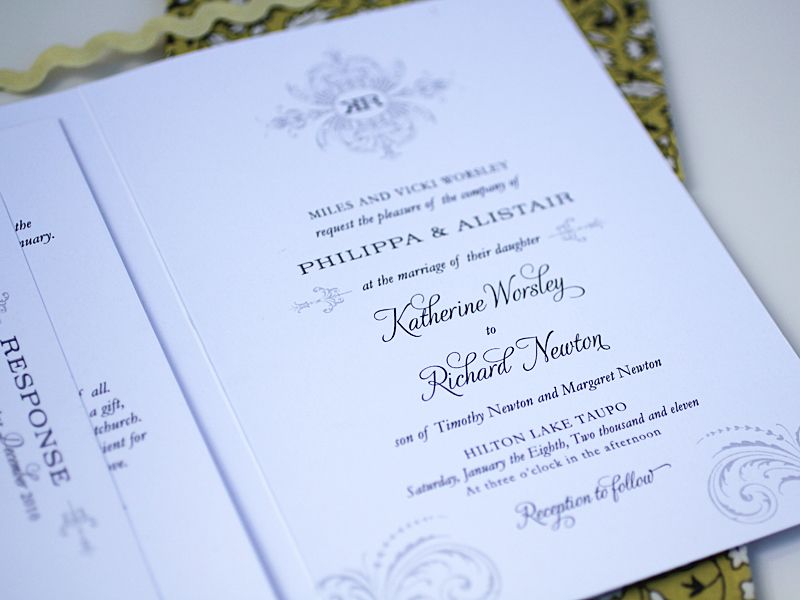 the
nuary.
all.
a gift,
tchurch.
ient for
ve.
RESPONSE
December 2010
MILES AND VICKI WORSLEY
request the pleasure of the company of
PHILIPPA & ALISTAIR
at the marriage of their daughter
Katherine Worsley
to
Richard Newton
son of Timothy Newton and Margaret Newton
HILTON LAKE TAUPO
Saturday, January the Eighth, Two thousand and eleven
At three o'clock in the afternoon
Reception to follow